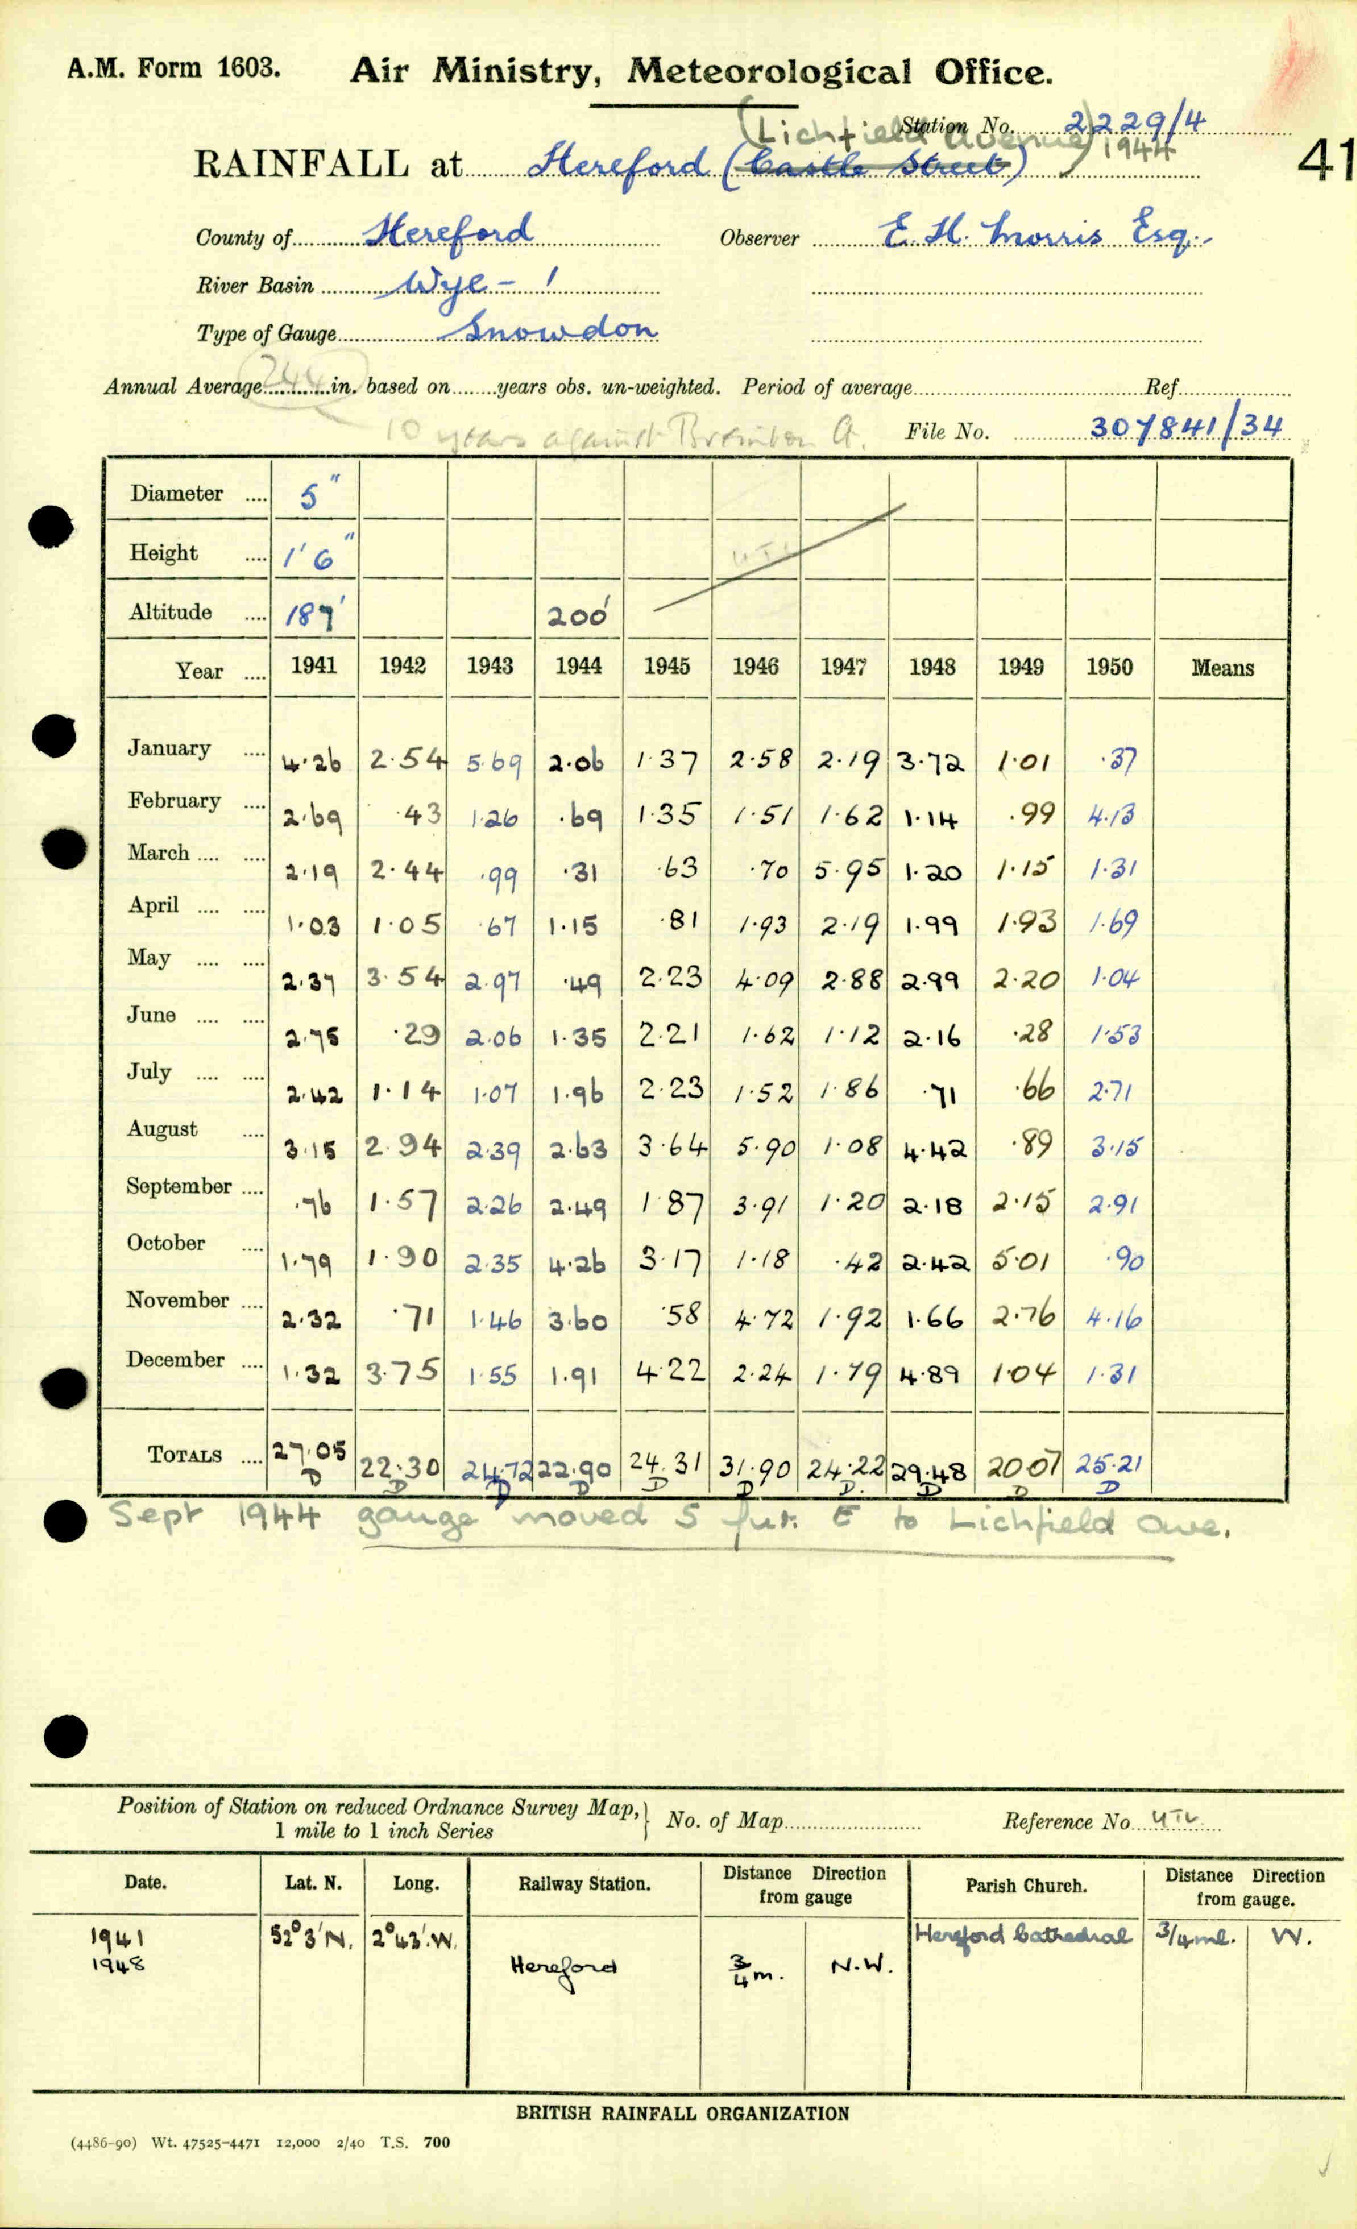 A.M. Form 1603. Air Ministry, Meteorological Office.
Station No. 2229/4
(Lichfield Avenue) 1944
RAINFALL at Hereford (Castle Street) 41
County of Hereford Observer E. H. Morris Esq.
River Basin Wye - 1
Type of Gauge Snowdon
Annual Average 244 in. based on years obs. un-weighted. Period of average Ref
10 years against A. File No. 307841/34
Diameter .... 5"
Height .... 1' 6" UTL
Altitude .... 187' 200'
Year .... 1941 1942 1943 1944 1945 1946 1947 1948 1949 1950 Means
January .... 4.26 2.54 5.69 2.06 1.37 2.58 2.19 3.72 1.01 .37
February .... 2.69 .43 1.26 .69 1.35 1.51 1.62 1.14 .99 4.13
March .... .... 2.19 2.44 .99 .31 .63 .70 5.95 1.20 1.15 1.31
April .... .... 1.03 1.05 .67 1.15 .81 1.93 2.19 1.99 1.93 1.69
May .... .... 2.37 3.54 2.97 .49 2.23 4.09 2.88 2.99 2.20 1.04
June .... .... 2.75 .29 2.06 1.35 2.21 1.62 1.12 2.16 .28 1.53
July .... .... 2.42 1.14 1.07 1.96 2.23 1.52 1.86 .71 .66 2.71
August .... 3.15 2.94 2.39 2.63 3.64 5.90 1.08 4.42 .89 3.15
September .... .76 1.57 2.26 2.49 1.87 3.91 1.20 2.18 2.15 2.91
October .... 1.79 1.90 2.35 4.26 3.17 1.18 .42 2.42 5.01 .90
November .... 2.32 .71 1.46 3.60 .58 4.72 1.92 1.66 2.76 4.16
December .... 1.32 3.75 1.55 1.91 4.22 2.24 1.79 4.89 1.04 1.31
TOTALS .... 27.05 22.30 24.72 22.90 24.31 31.90 24.22 29.48 20.07 25.21
D D D D D D D. D D D
Sept 1944 gauge moved 5 fur. E to Lichfield Ave.
Position of Station on reduced Ordnance Survey Map, } No. of Map Reference No UTL
1 mile to 1 inch Series
Date. Lat. N. Long. Railway Station. Distance Direction from gauge Parish Church. Distance Direction from gauge.
1941 52° 3' N. 2° 43'. W. Hereford Cathedral 3/4 ml. W.
1948 Hereford 3/4 m. N.W.
BRITISH RAINFALL ORGANIZATION
(4486-90) Wt. 47525-4471 12,000 2/40 T.S. 700